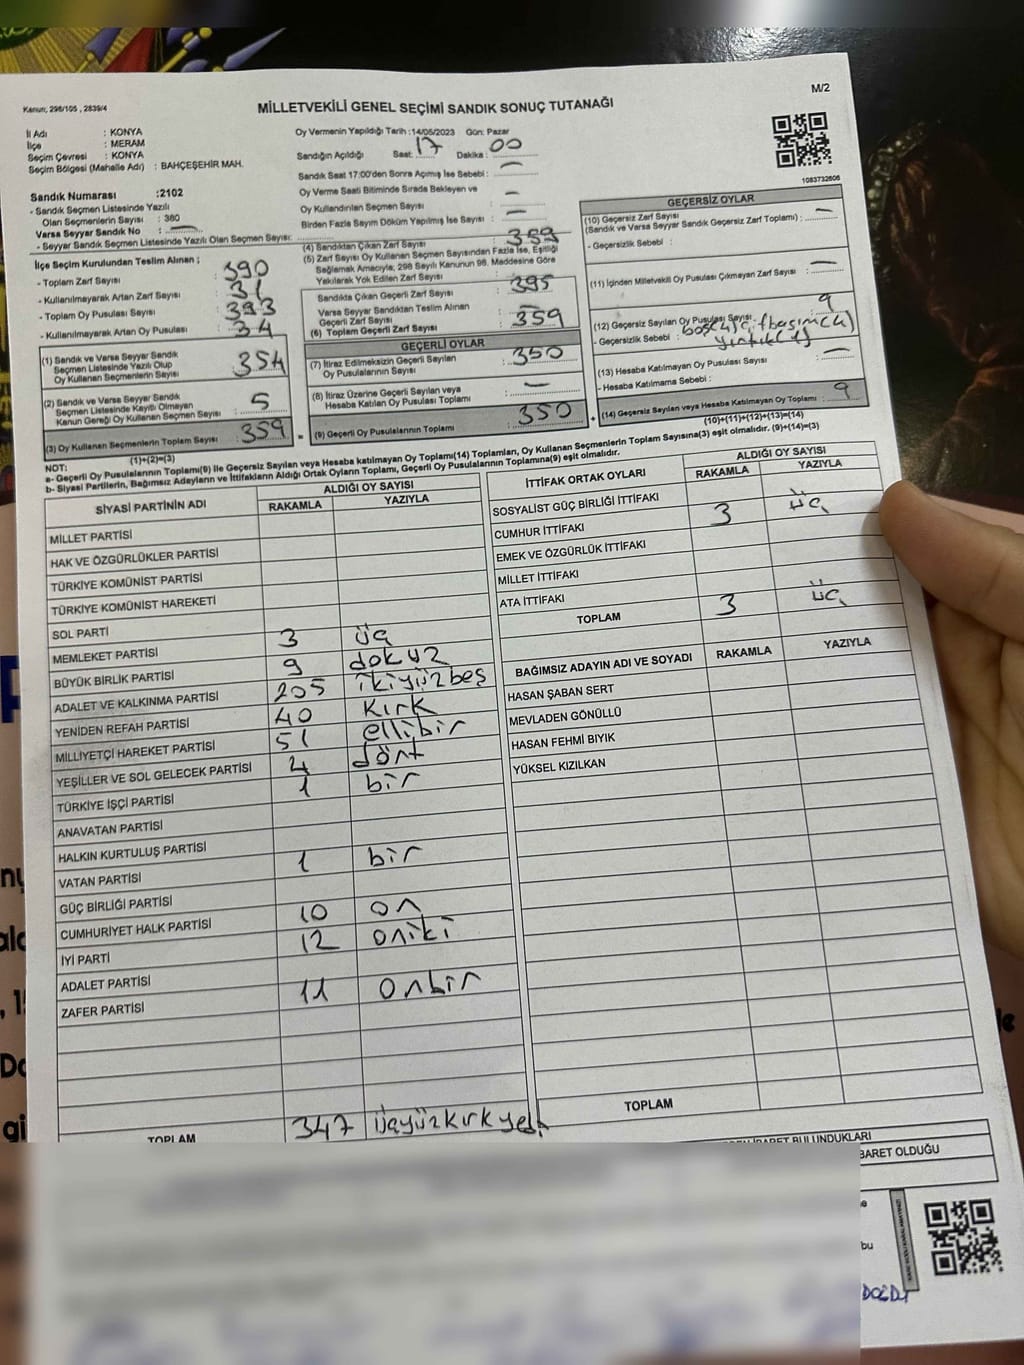 Kanun; 298/105 , 2839/4
MİLLETVEKİLİ GENEL SEÇİMİ SANDIK SONUÇ TUTANAĞI
M/2
İl Adı : KONYA
İlçe : MERAM
Seçim Çevresi : KONYA
Seçim Bölgesi (Mahalle Adı) : BAHÇEŞEHİR MAH.
Oy Vermenin Yapıldığı Tarih :14/05/2023 Gün: Pazar
Sandığın Açıldığı Saat: 17 Dakika : 00
Sandık Saat 17:00'den Sonra Açılmış İse Sebebi : —
Oy Verme Saati Bitiminde Sırada Bekleyen ve
Oy Kullandırılan Seçmen Sayısı : —
Birden Fazla Sayım Döküm Yapılmış İse Sayısı : —
1083732606
Sandık Numarası :2102
- Sandık Seçmen Listesinde Yazılı
Olan Seçmenlerin Sayısı : 380
Varsa Seyyar Sandık No : —
- Seyyar Sandık Seçmen Listesinde Yazılı Olan Seçmen Sayısı:
İlçe Seçim Kurulundan Teslim Alınan ;
- Toplam Zarf Sayısı : 390
- Kullanılmayarak Artan Zarf Sayısı : 31
- Toplam Oy Pusulası Sayısı : 393
- Kullanılmayarak Artan Oy Pusulası : 34
(1) Sandık ve Varsa Seyyar Sandık
Seçmen Listesinde Yazılı Olup
Oy Kullanan Seçmenlerin Sayısı : 354
(2) Sandık ve Varsa Seyyar Sandık
Seçmen Listesinde Kayıtlı Olmayan
Kanun Gereği Oy Kullanan Seçmen Sayısı : 5
(3) Oy Kullanan Seçmenlerin Toplam Sayısı : 359
(1)+(2)=(3)
(4) Sandıktan Çıkan Zarf Sayısı : 359
(5) Zarf Sayısı Oy Kullanan Seçmen Sayısından Fazla İse, Eşitliği
Sağlamak Amacıyla; 298 Sayılı Kanunun 98. Maddesine Göre
Yakılarak Yok Edilen Zarf Sayısı : —
Sandıkta Çıkan Geçerli Zarf Sayısı : 395
Varsa Seyyar Sandıktan Teslim Alınan
Geçerli Zarf Sayısı : —
(6) Toplam Geçerli Zarf Sayısı : 359
GEÇERLİ OYLAR
(7) İtiraz Edilmeksizin Geçerli Sayılan
Oy Pusulasının Sayısı : 350
(8) İtiraz Üzerine Geçerli Sayılan veya
Hesaba Katılan Oy Pusulası Toplamı : —
(9) Geçerli Oy Pusulalarının Toplamı : 350
GEÇERSİZ OYLAR
(10) Geçersiz Zarf Sayısı
(Sandık ve Varsa Seyyar Sandık Geçersiz Zarf Toplamı) : —
- Geçersizlik Sebebi :
(11) İçinden Milletvekili Oy Pusulası Çıkmayan Zarf Sayısı : —
(12) Geçersiz Sayılan Oy Pusulası Sayısı : 9
- Geçersizlik Sebebi : boş(4) çift basım(4)
yırtık(1)
(13) Hesaba Katılmayan Oy Pusulası Sayısı : —
- Hesaba Katılmama Sebebi :
(14) Geçersiz Sayılan veya Hesaba Katılmayan Oy Toplamı : 9
(10)+(11)+(12)+(13)=(14)
NOT:
a- Geçerli Oy Pusulalarının Toplamı(9) ile Geçersiz Sayılan veya Hesaba katılmayan Oy Toplamı(14) Toplamları, Oy Kullanan Seçmenlerin Toplam Sayısına(3) eşit olmalıdır. (9)+(14)=(3)
b- Siyasi Partilerin, Bağımsız Adayların ve İttifakların Aldığı Ortak Oyların Toplamı, Geçerli Oy Pusulalarının Toplamına(9) eşit olmalıdır.
SİYASİ PARTİNİN ADI ALDIĞI OY SAYISI
RAKAMLA YAZIYLA
MİLLET PARTİSİ
HAK VE ÖZGÜRLÜKLER PARTİSİ
TÜRKİYE KOMÜNİST PARTİSİ
TÜRKİYE KOMÜNİST HAREKETİ
SOL PARTİ
MEMLEKET PARTİSİ 3 üç
BÜYÜK BİRLİK PARTİSİ 9 dokuz
ADALET VE KALKINMA PARTİSİ 205 ikiyüzbeş
YENİDEN REFAH PARTİSİ 40 kırk
MİLLİYETÇİ HAREKET PARTİSİ 51 ellibir
YEŞİLLER VE SOL GELECEK PARTİSİ 4 dört
TÜRKİYE İŞÇİ PARTİSİ 1 bir
ANAVATAN PARTİSİ
HALKIN KURTULUŞ PARTİSİ
VATAN PARTİSİ 1 bir
GÜÇ BİRLİĞİ PARTİSİ
CUMHURİYET HALK PARTİSİ 10 on
İYİ PARTİ 12 oniki
ADALET PARTİSİ
ZAFER PARTİSİ 11 onbir
TOPLAM 347 üçyüzkırkyedi
İTTİFAK ORTAK OYLARI ALDIĞI OY SAYISI
RAKAMLA YAZIYLA
SOSYALİST GÜÇ BİRLİĞİ İTTİFAKI
CUMHUR İTTİFAKI 3 üç
EMEK VE ÖZGÜRLÜK İTTİFAKI
MİLLET İTTİFAKI
ATA İTTİFAKI
TOPLAM 3 üç
BAĞIMSIZ ADAYIN ADI VE SOYADI RAKAMLA YAZIYLA
HASAN ŞABAN SERT
MEVLADEN GÖNÜLLÜ
HASAN FEHMİ BIYIK
YÜKSEL KIZILKAN
TOPLAM
BULUNDUKLARI
BARET OLDUĞU
bu